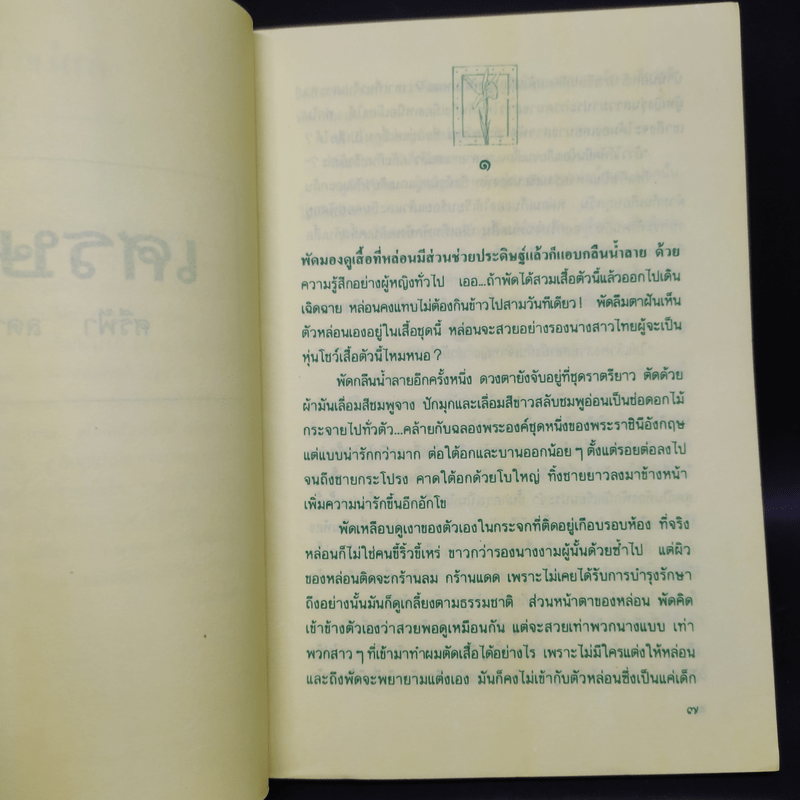 ๑
พัดมองดูเสื้อที่หล่อนมีส่วนช่วยประดิษฐ์แล้วก็แอบกลืนน้ำลาย ด้วย
ความรู้สึกอย่างผู้หญิงทั่วไป เออ...ถ้าพัดได้สวมเสื้อตัวนี้แล้วออกไปเดิน
เฉิดฉาย หล่อนคงแทบไม่ต้องกินข้าวไปสามวันทีเดียว! พัดลืมตาฝันเห็น
ตัวหล่อนเองอยู่ในเสื้อชุดนี้ หล่อนจะสวยอย่างรองนางสาวไทยผู้จะเป็น
หุ่นโชว์เสื้อตัวนี้ไหมหนอ?
พัดกลืนน้ำลายอีกครั้งหนึ่ง ดวงตายังจับอยู่ที่ชุดราตรียาว ตัดด้วย
ผ้ามันเลื่อมสีชมพูจาง ปักมุกและเลื่อมสีขาวสลับชมพูอ่อนเป็นช่อดอกไม้
กระจายไปทั่วตัว...คล้ายกับฉลองพระองค์ชุดหนึ่งของพระราชินีอังกฤษ
แต่แบบน่ารักกว่ามาก ต่อใต้อกและบานออกน้อยๆ ตั้งแต่รอยต่อลงไป
จนถึงชายกระโปรง คาดใต้อกด้วยโบใหญ่ ทิ้งชายยาวลงมาข้างหน้า
เพิ่มความน่ารักขึ้นอีกอักโข
พัดเหลือบดูเงาของตัวเองในกระจกที่ติดอยู่เกือบรอบห้อง ที่จริง
หล่อนก็ไม่ใช่คนขี้ริ้วขี้เหร่ ขาวกว่ารองนางงามผู้นั้นด้วยซ้ำไป แต่ผิว
ของหล่อนติดจะกร้านลม กร้านแดด เพราะไม่เคยได้รับการบำรุงรักษา
ถึงอย่างนั้นมันก็ดูเกลี้ยงตามธรรมชาติ ส่วนหน้าตาของหล่อน พัดคิด
เข้าข้างตัวเองว่าสวยพอดูเหมือนกัน แต่จะสวยเท่าพวกนางแบบ เท่า
พวกสาวๆ ที่เข้ามาทำผมตัดเสื้อได้อย่างไร เพราะไม่มีใครแต่งให้หล่อน
และถึงพัดจะพยายามแต่งเอง มันก็คงไม่เข้ากับตัวหล่อนซึ่งเป็นแค่เด็ก
๗